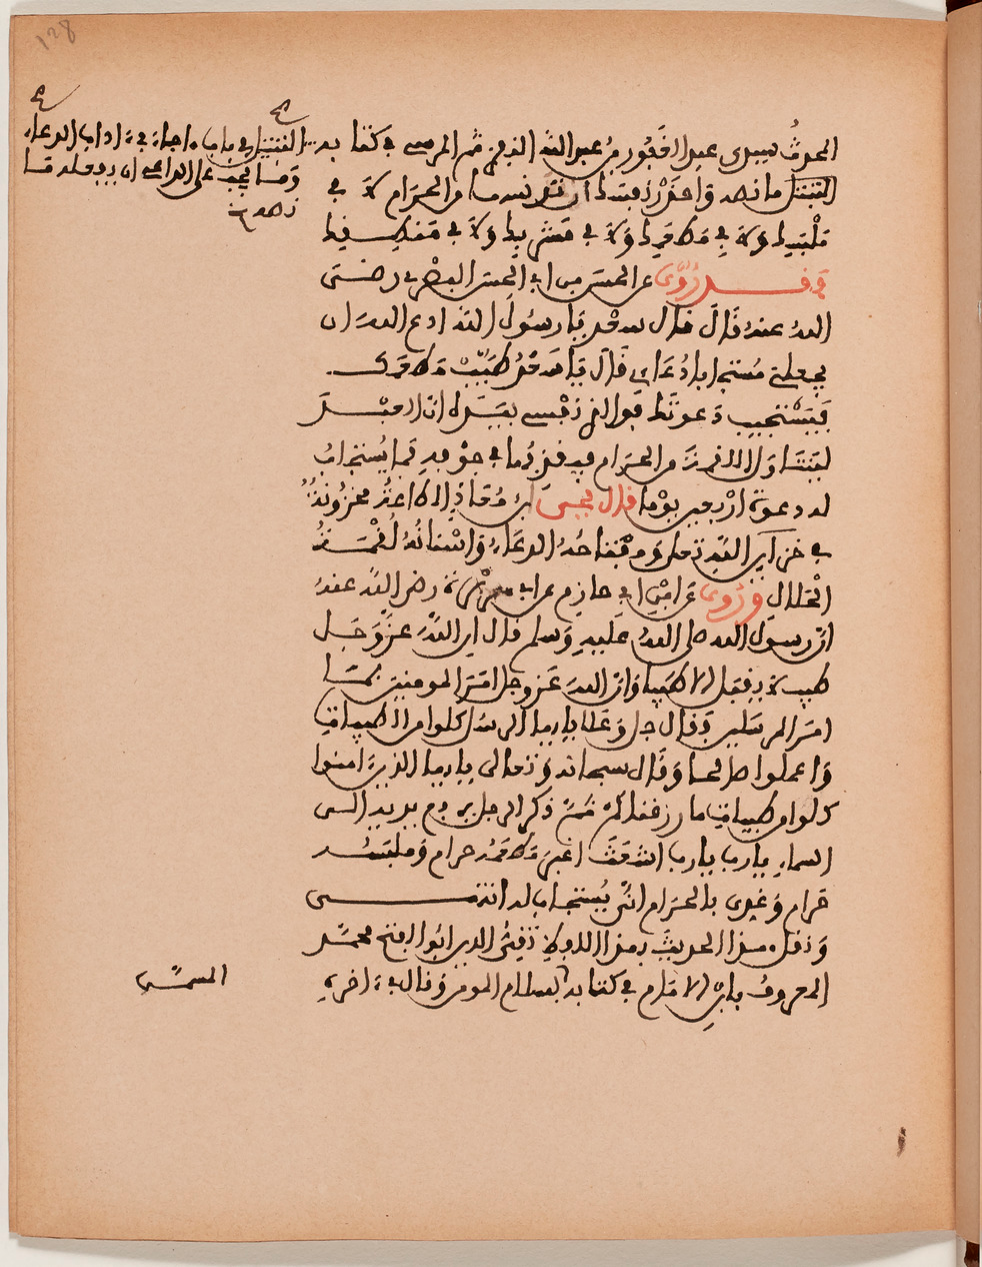 128
المحدث سيدي عبد الغفور بن عبد الله الذي من المرسى في كتابه
التبتل في باب ما جاء في اداب الدعاء
وما يجب على الداعي ان يفعله ما
نصه
التبتل ما نصه واحذر نفسك ان تدنسها من الحرام لا في
ملبسك ولا في مطعمك ولا في مشربك ولا في
وقد روي عن الحسن بن ابي الحسن البصري رضي
الله عنه قال قال سعد يا رسول الله ادع الله ان
يجعلني مستجابا دعاءي قال يا سعد طيب مطعمك
يستجيب دعوتك فوالذي نفسي بيده ان الرجل
ليتناول اللقمة من الحرام فيقذفها في جوفه فما يستجاب
له دعوة اربعين يوما قال يحيى ابن معاذ الطاعة مخزونة
في خزاين الله تعلى ومفتاحه الدعاء واسنانه لقمة
الحلال وروي عن ابي حازم عن ابي هريرة رضي الله عنه
ان رسول الله صلى الله عليه وسلم قال ان الله عز وجل
طيب لا يقبل الا طيبا وان الله عز وجل امر المومنين بما
امر المرسلين فقال جل وعلا يا ايها الرسل كلوا من الطيبات
واعملوا صالحا وقال سبحانه وتعالى يا ايها الذين ءامنوا
كلوا من طيبات ما رزقناكم ثم ذكر الرجل يمد يديه الى
السماء يا رب يا رب اشعث اغبر مطعمه حرام وملبسه
حرام وغذي بالحرام انى يستجاب له انتهى
ونقل هذا الحديث بهذا اللفظ تقي الدين ابو الفتح محمد
المعروف بابن الامام في كتابه سلاح المومن وقال في ءاخره
المسمى